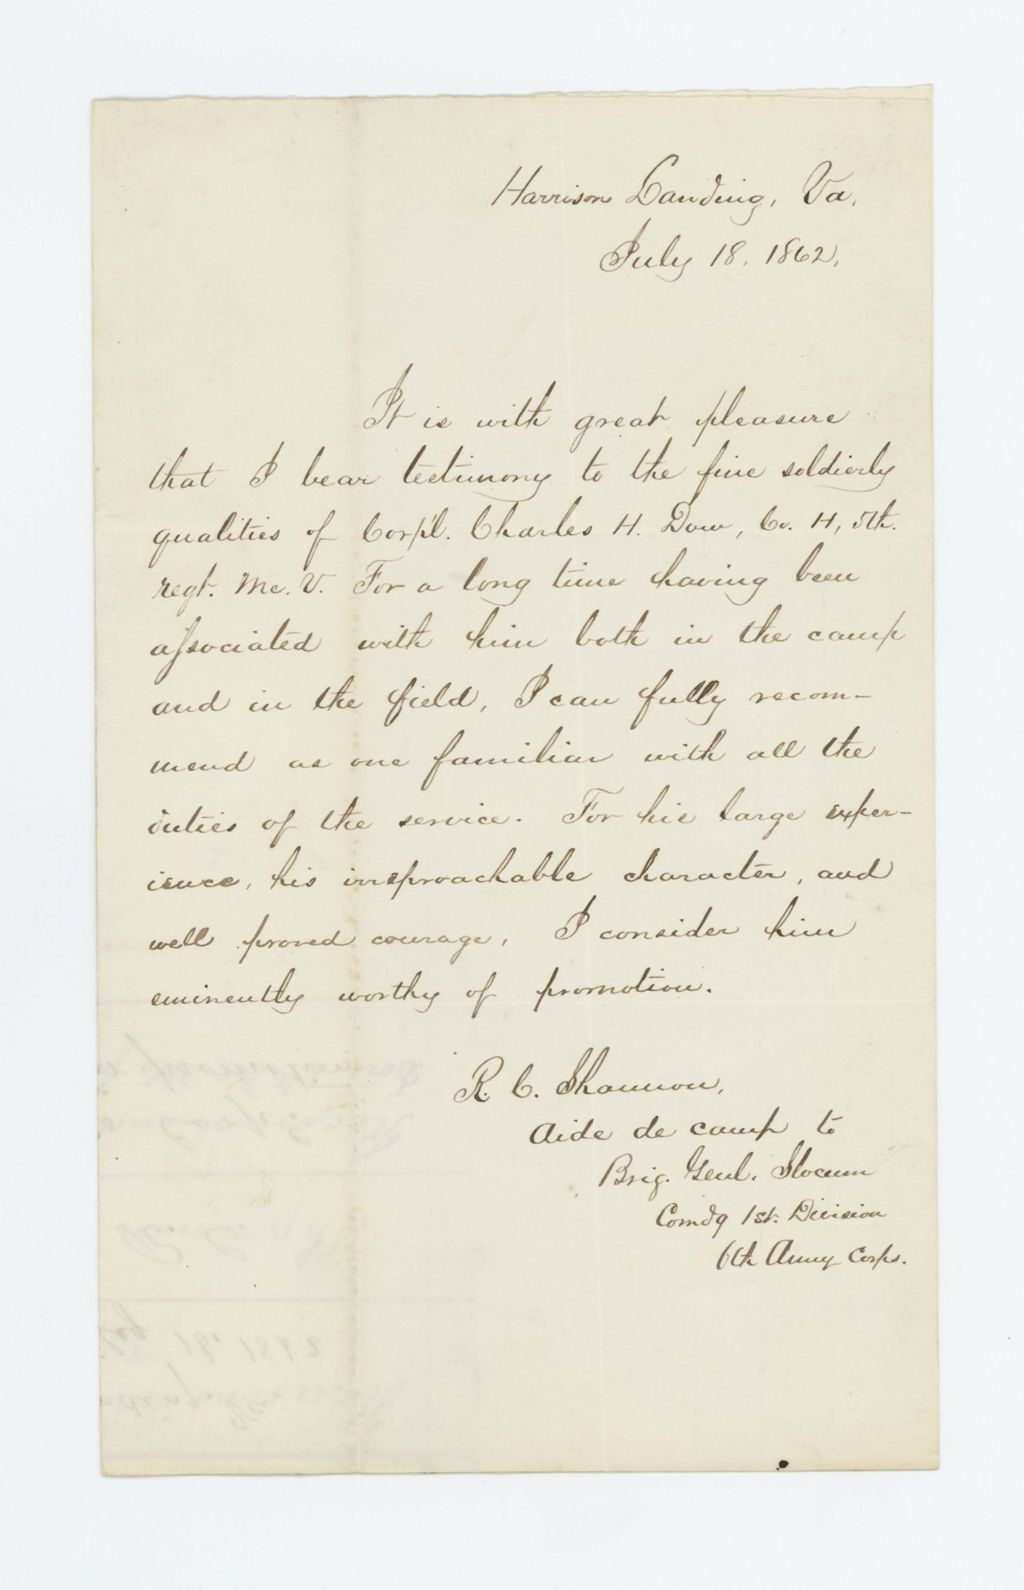 Harrison Landing, Va.
July 18. 1862.
It is with great pleasure
that I bear testimony to the fine soldierly
qualities of Corp'l. Charles H. Dow, Co. H, 5th.
regt. Me. V. For a long time having been
associated with him both in the camp
and in the field, I can fully recom-
mend as one familiar with all the
duties of the service. For his large exper-
ience, his irreproachable character, and
well proved courage, I consider him
eminently worthy of promotion.
R. C. Shannon,
Aide de camp to
Brig. Genl. Slocum
Comdg 1st. Division
6th Army Corps.